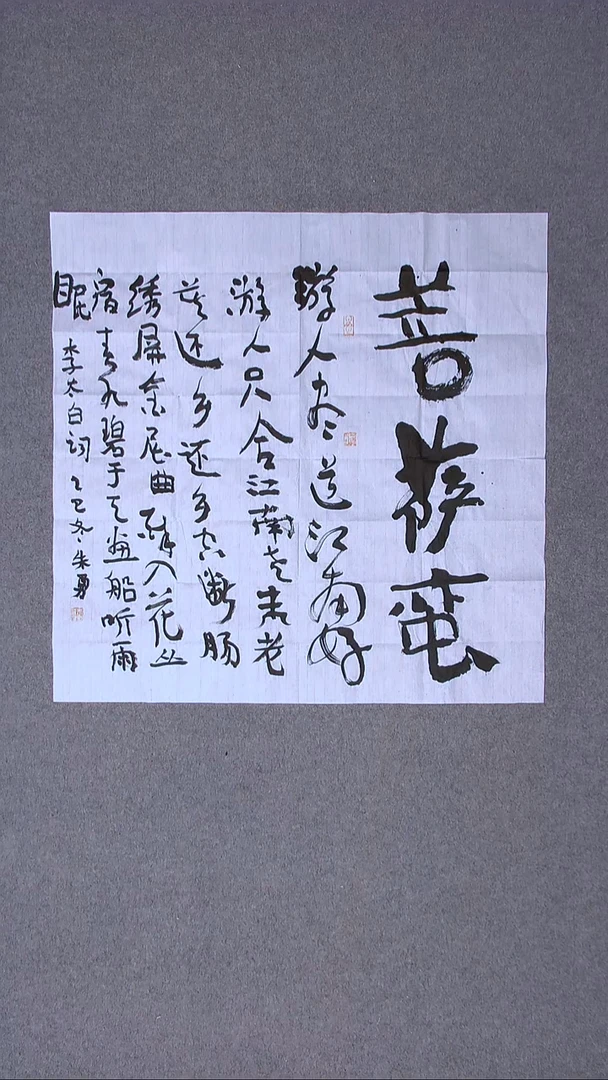 菩萨蛮
游人尽道江南好
游人只合江南老未老
莫还乡还乡空断肠
绣屏金屈曲醉入花丛
宿春水碧于天画船听雨
眠 李太白词 乙巳冬 朱勇